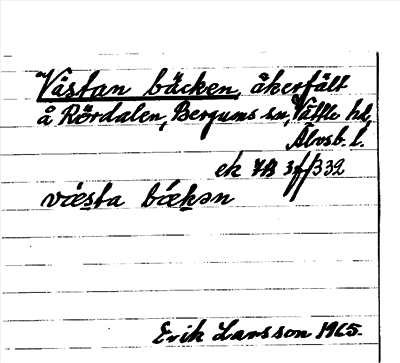 Västan bäcken, åkerfält
å Rördalen, Bergums sn, Vättle hd,
Älvsb. l.
ek 7B 3f/332
væsta bækən
Erik Larsson 1965.